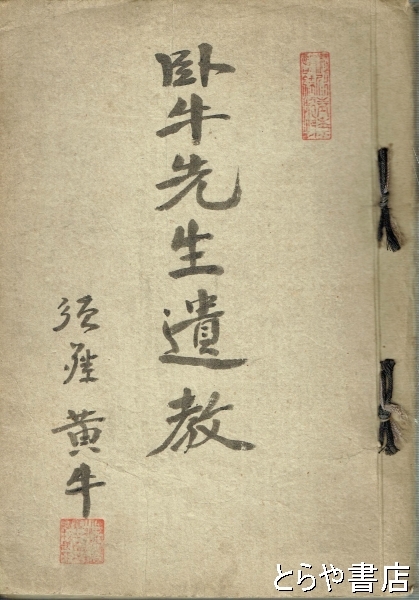 臥牛先生遺教
須 黄牛
とらや書店